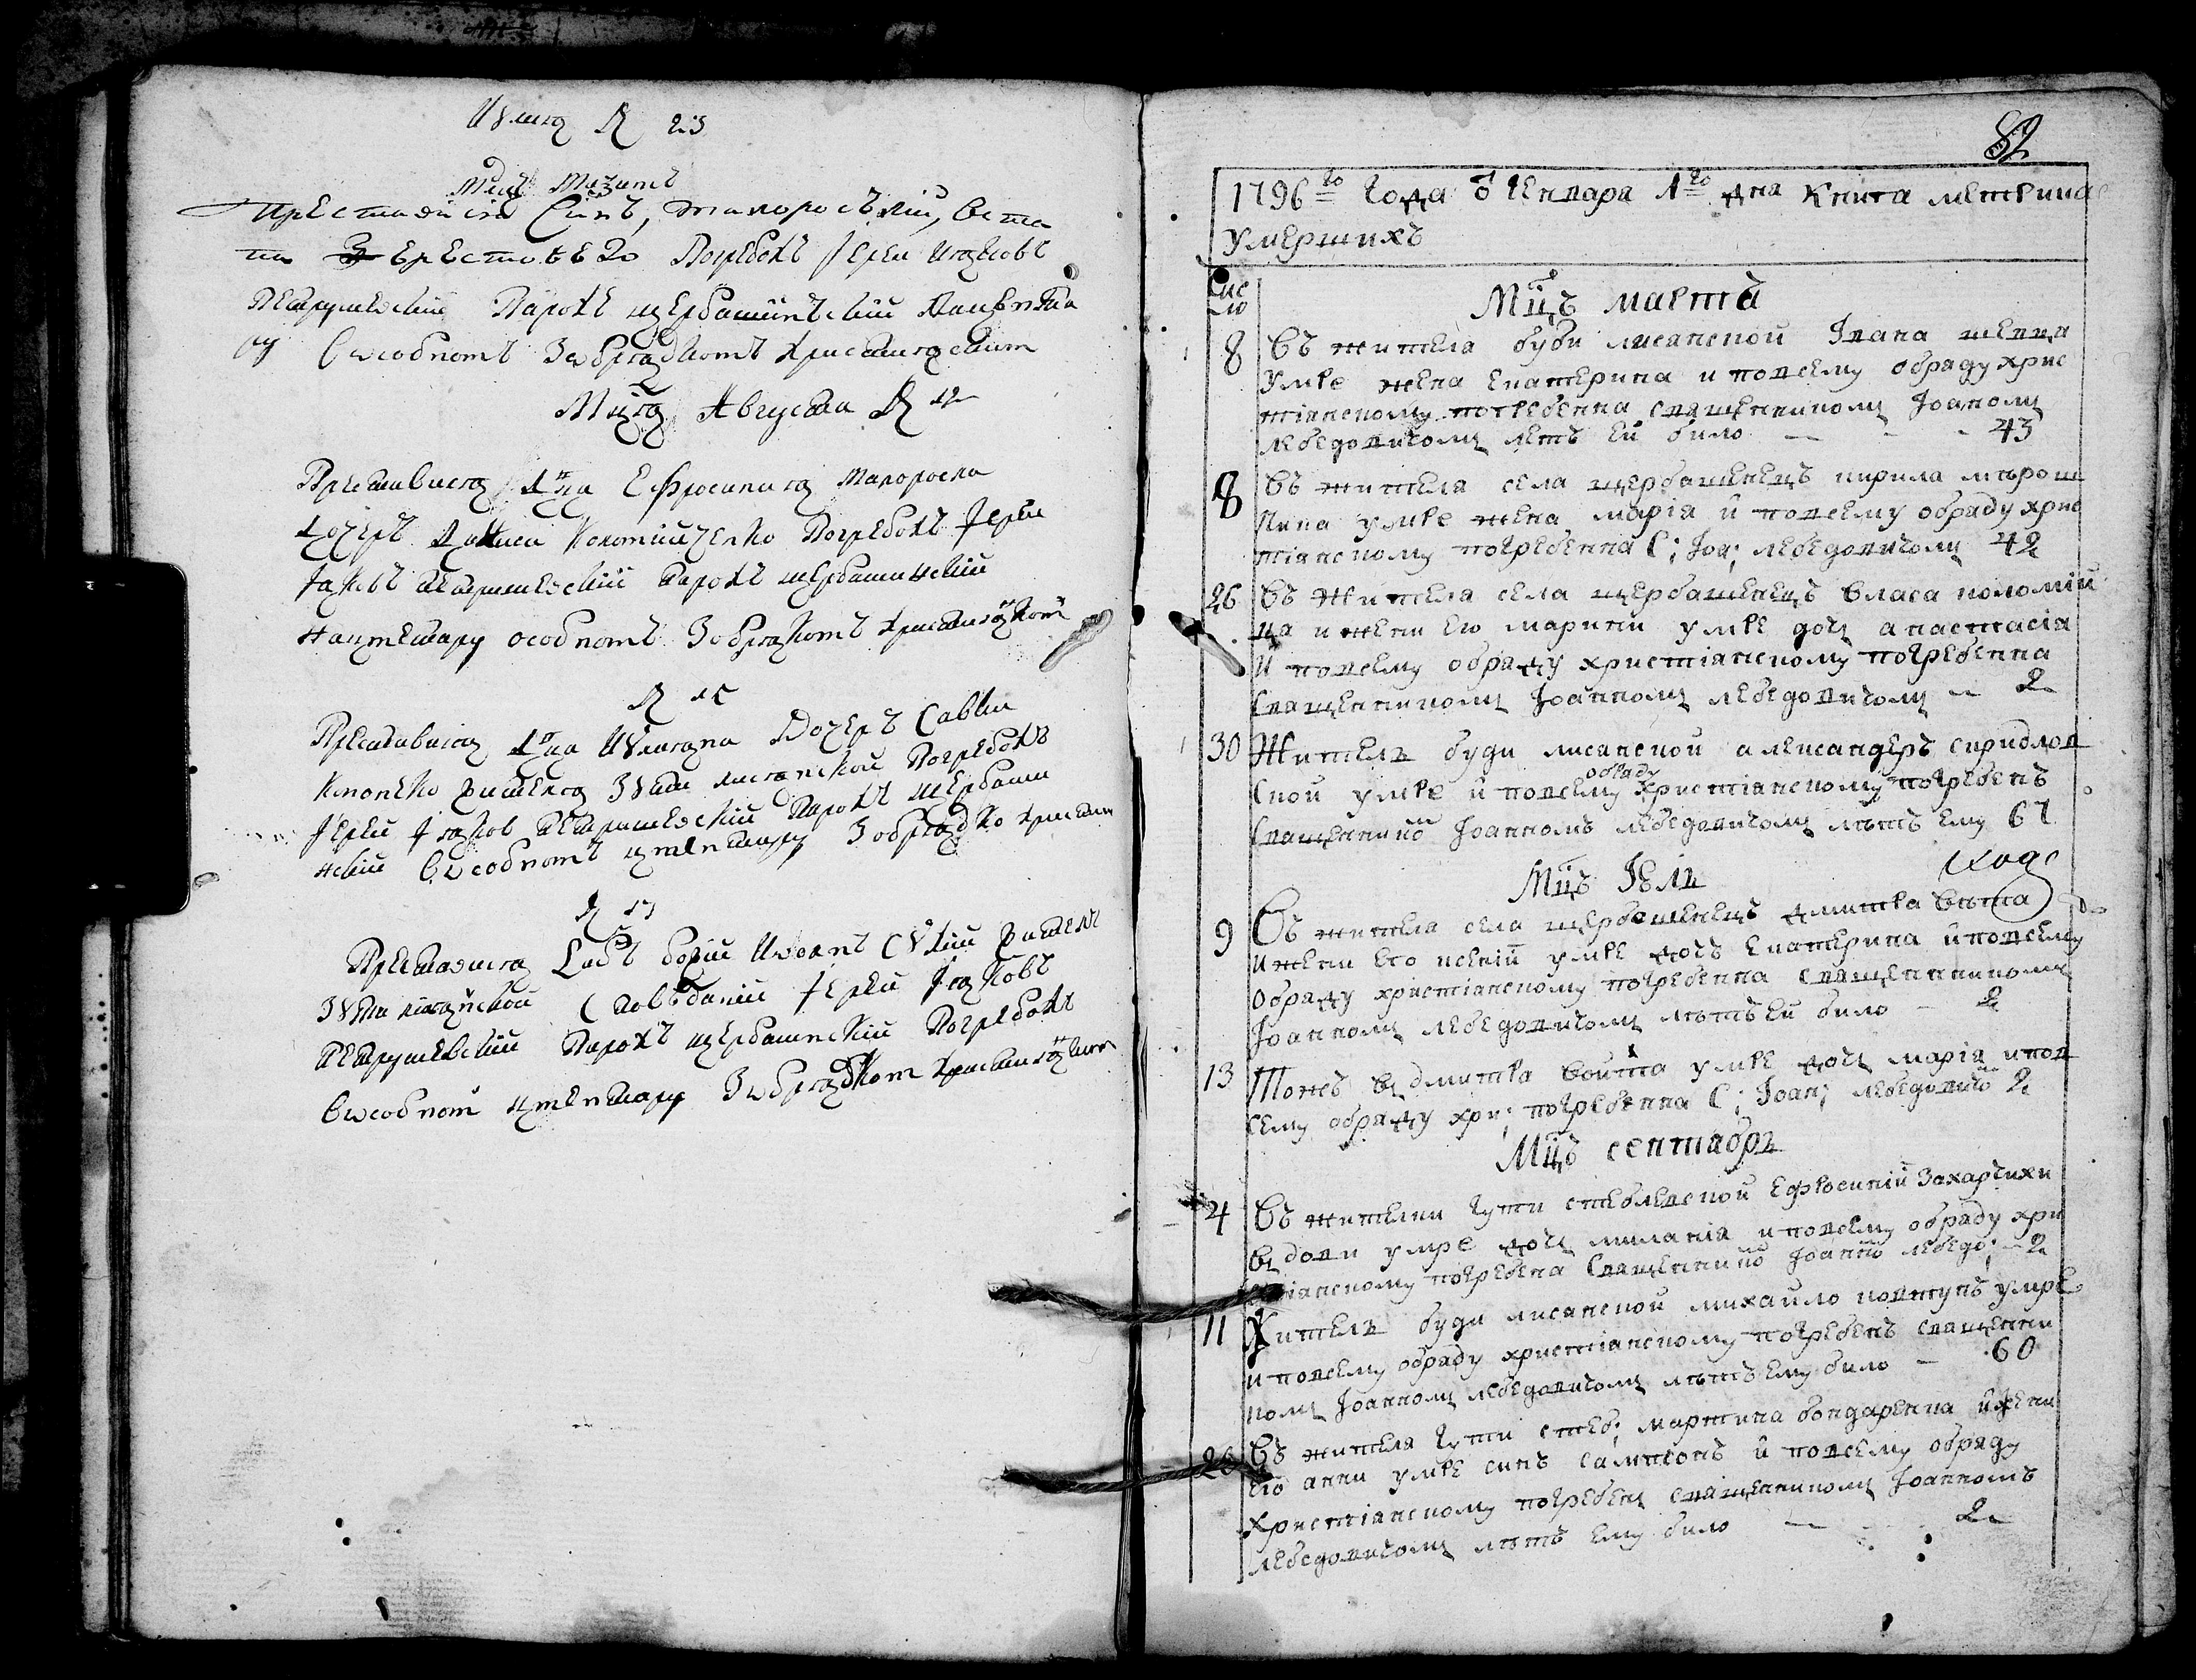 Июля Д 23
Преставися Синъ, малоросълій,
Погребохъ Іерей Иаковъ
Петрушевскій Парохъ щербашинскій
ру Особномъ Зобрядкомъ Христианским
Мца Августа Д 12
Преставися Ефросиния Малоросла
Дочеръ Коломийченко Погребохъ Іерей
Іаковъ Петрушевскій парохъ щербашинскій
на цментару особномъ Зобрядкомъ Христианскомъ
Д 15
Преставися Июлияна Дочеръ Саввы
Кононенко жителя Буди лисянской Погребохъ
Іерей Іяков Петрушевскій Парохъ щербаши
нскій Вособномъ цментару Зобрядко христиан
Д 17
Преставися Рабъ божий жителъ
Буди лисянской Сповѣданій Іерей Іяковъ
Петрушевскій Парохъ щербашинскій Погребохъ
Вособном цментару Зобрядком Христианским
82
1796го Года о Генвара 1го дна Книга метрична
Умершихъ
Чис
ло
Мцъ марта
8 Въ жителя буди лисянской Івана шевца
умре жена Екатерина и повсему обряду хрис
тіанскому погребенна священникомъ Іоаномъ
лебедовичомъ летъ ей било 43
8 Въ жителя села щербашенецъ кирила мирош
ника умре жена марія и повсему обряду хрис
тіанскому погребенна С; Іоа; лебедовичомъ 42
26 Въ жителя села щербашенецъ власа коломій
ца и жени его марини умре дочъ анастасія
и повсему обряду христіанскому погребенна
священникомъ Іоанномъ лебедовичомъ 2
30 Жителъ буди лисянской александеръ спиридов
ской умре и повсему обряду христіанскому погребенъ
священнико Іоанномъ лебедовичомъ лѣтъ ему 67
Мцъ Іюль
9 Въ жителя села щербашенецъ дмитра вѣта
и жени его ксеніи умре дочъ Екатерина и повсему
обряду христіанскому погребенна священникомъ
Іоанномъ лебедовичомъ лѣтъ ей било 2
13 Тожъ въ дмитра войта умре дочъ марія и пов
сему обряду хри; погребенна С; Іоан; лебедовичо 2
Мцъ септабръ
4 Въ жителки гути стеблевской Ефросиніи Захарчихи
вдови умре дочъ миланія и повсему обряду хри
стіанскому погребена священнико Іоанно лебедо; 2
11 Жителъ буди лисянской михайло ковтунъ умре
и повсему обряду христіанскому погребенъ священни
комъ Іоанномъ лебедовичомъ лѣтъ ему било 60
26 Въ жителя гути стеб; мартина бондаренка и жени
его анни умре синъ сампсонъ и повсему обряду
христіанскому погребенъ священникомъ Іоанномъ
лебедовичомъ лѣтъ ему било 2